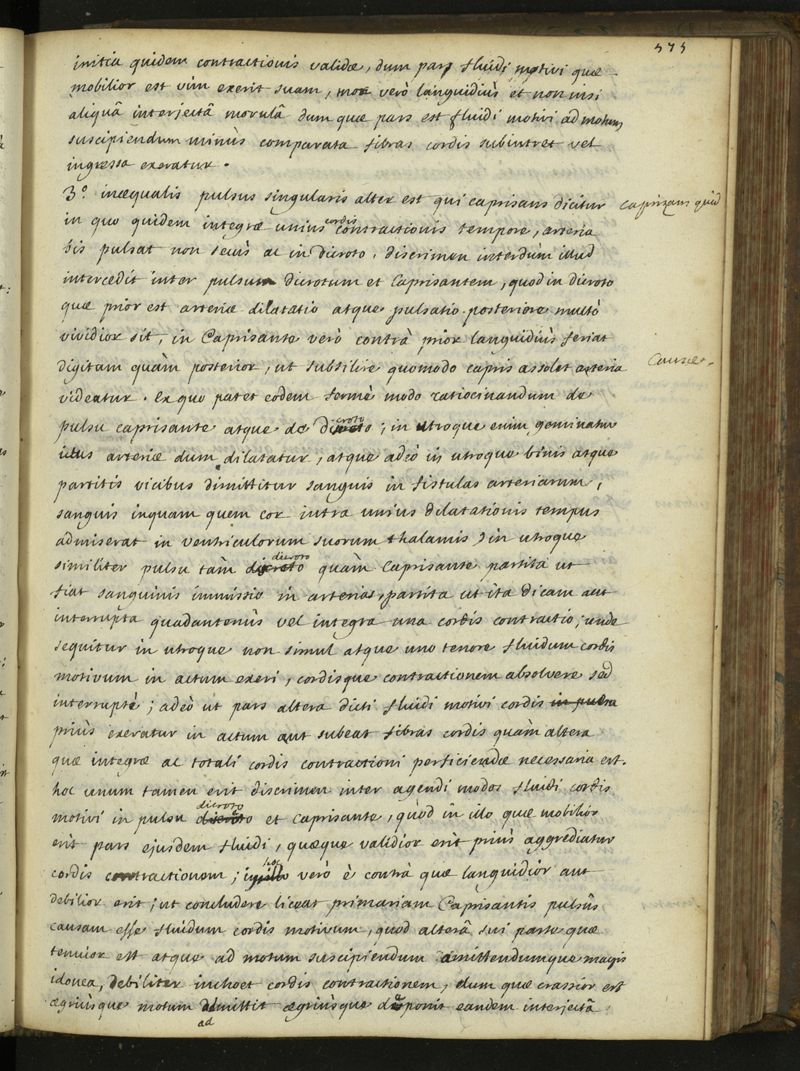 575
initia quidem contractionis validæ, dum pars fluidi motivi quæ
mobilior est vim exerit suam, mox verò languidiùs et non nisi
aliquâ interjectâ morulâ dum quæ pars est fluidi motivi ad motum
suscipiendum minùs comparata fibras cordis subintret vel
ingressa exeratur.
3.° inæqualis pulsus singularis alter est qui caprisans dicitur
caprizans quid
in quo quidem integræ unius cordis contractionis tempore, arteria
bis pulsat non secùs ac in dicroto. discrimen interdùm illud
intercedit inter pulsum dicrotum et Caprisantem, quod in dicroto
quæ prior est arteriæ dilatatio atque pulsatio posteriore multò
vividior sit, in Caprisante verò contrà prior languidiùs feriat
digitum quàm posterior, ut subsilire quomodo capris assolet arteria
Causæ.
videatur. Ex quo patet eodem fermè modo ratiocinandum de
pulsu caprisante atque de dicroto; in utroque enim geminatur
ictus arteriæ dum dilatatur, atque adeò in utroque binis atque
partitis vicibus dimittitur sanguis in fistulas arteriarum,
sanguis inquam quem cor intra unius dilatationis tempus
admiserat in ventriculorum suorum thalamis, in utroque
similiter pulsu tàm dicroto quàm Caprisante partita ut
fiat sanguinis immissio in arterias, partita ut ita dicam aut
interrupta quadantenùs vel integra una cordis contractio; unde
sequitur in utroque non simul atque uno tenore fluidum cordis
motivum in actum exeri, cordisque contractionem absolvere sed
interruptè; adeò ut pars altera dicti fluidi motivi cordis
priùs exeratur in actum aut subeat fibras cordis quàm altera
quæ integræ ac totali cordis contractioni perficiendæ necessaria est.
hoc unum tamen erit discrimen inter agendi modos fluidi cordis
motivi in pulsu dicroto et Caprisante, quòd in illo quæ mobilior
erit pars ejusdem fluidi, quæque validior erit priùs aggrediatur
cordis contractionem; in hoc verò è contrà quæ languidior aut
debilior erit; ut concludere liceat primariam Caprisantis pulsûs
causam esse fluidum cordis motivum, quod alterâ sui parte quæ
tenuior est atque ad motum suscipiendum amittendumque magis
idonea, debiliter inchoet cordis contractionem, dum quæ crassior est
ægriùsque motum admittit ægriùsque deponit eandem interjectâ